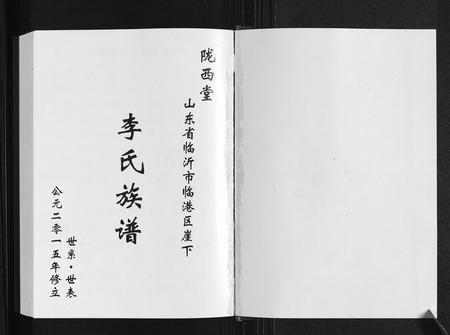 陇西堂
山东省临沂市临港区崖下
李氏族谱
世系·世表
公元二零一五年修立